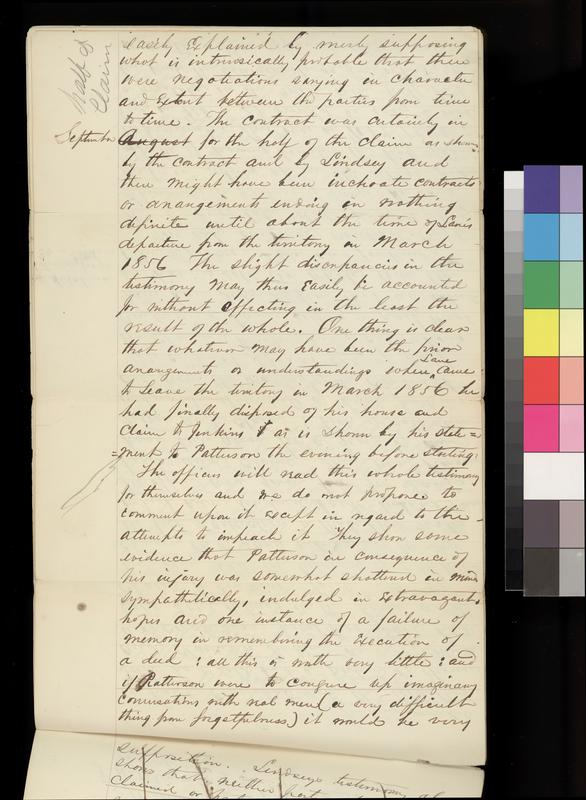 half of
Claim
easily Explained by merely supposing
what is intrinsically probable that there
were negotiations varying in character
and Extent between the parties from time
to time. The contract was certainly in
September August for the half of the claim as shown
by the contract and by Lindsey and
there might have been inchoate contracts
or arrangements ending in nothing
definite until about the time of Lane's
departure from the territory in March
1856 The slight discrepancies in the
testimony may thus Easily be accounted
for without effecting in the least the
result of the whole. One thing is clear
that whatever may have been the prior
arrangements or understandings when Lane came
to leave the territory in March 1856 he
had finally disposed of his house and
claim to Jenkins & as is shown by his state=
=ment to Patterson the evening before starting.
The officers will read this whole testimony
for themselves and we do not propose to
comment upon it except in regard to the
attempts to impeach it They show some
evidence that Patterson in consequence of
his injury was somewhat shattered in mind
sympathetically, indulged in Extravagant
hopes and one instance of a failure of
memory in remembering the Execution of
a deed : all this is worth very little : and
if Patterson were to conjure up imaginary
conversations with real men (a very difficult
thing from forgetfulness) it would be very
supposition. Lindseys testimony al
shows that neither
claimed or